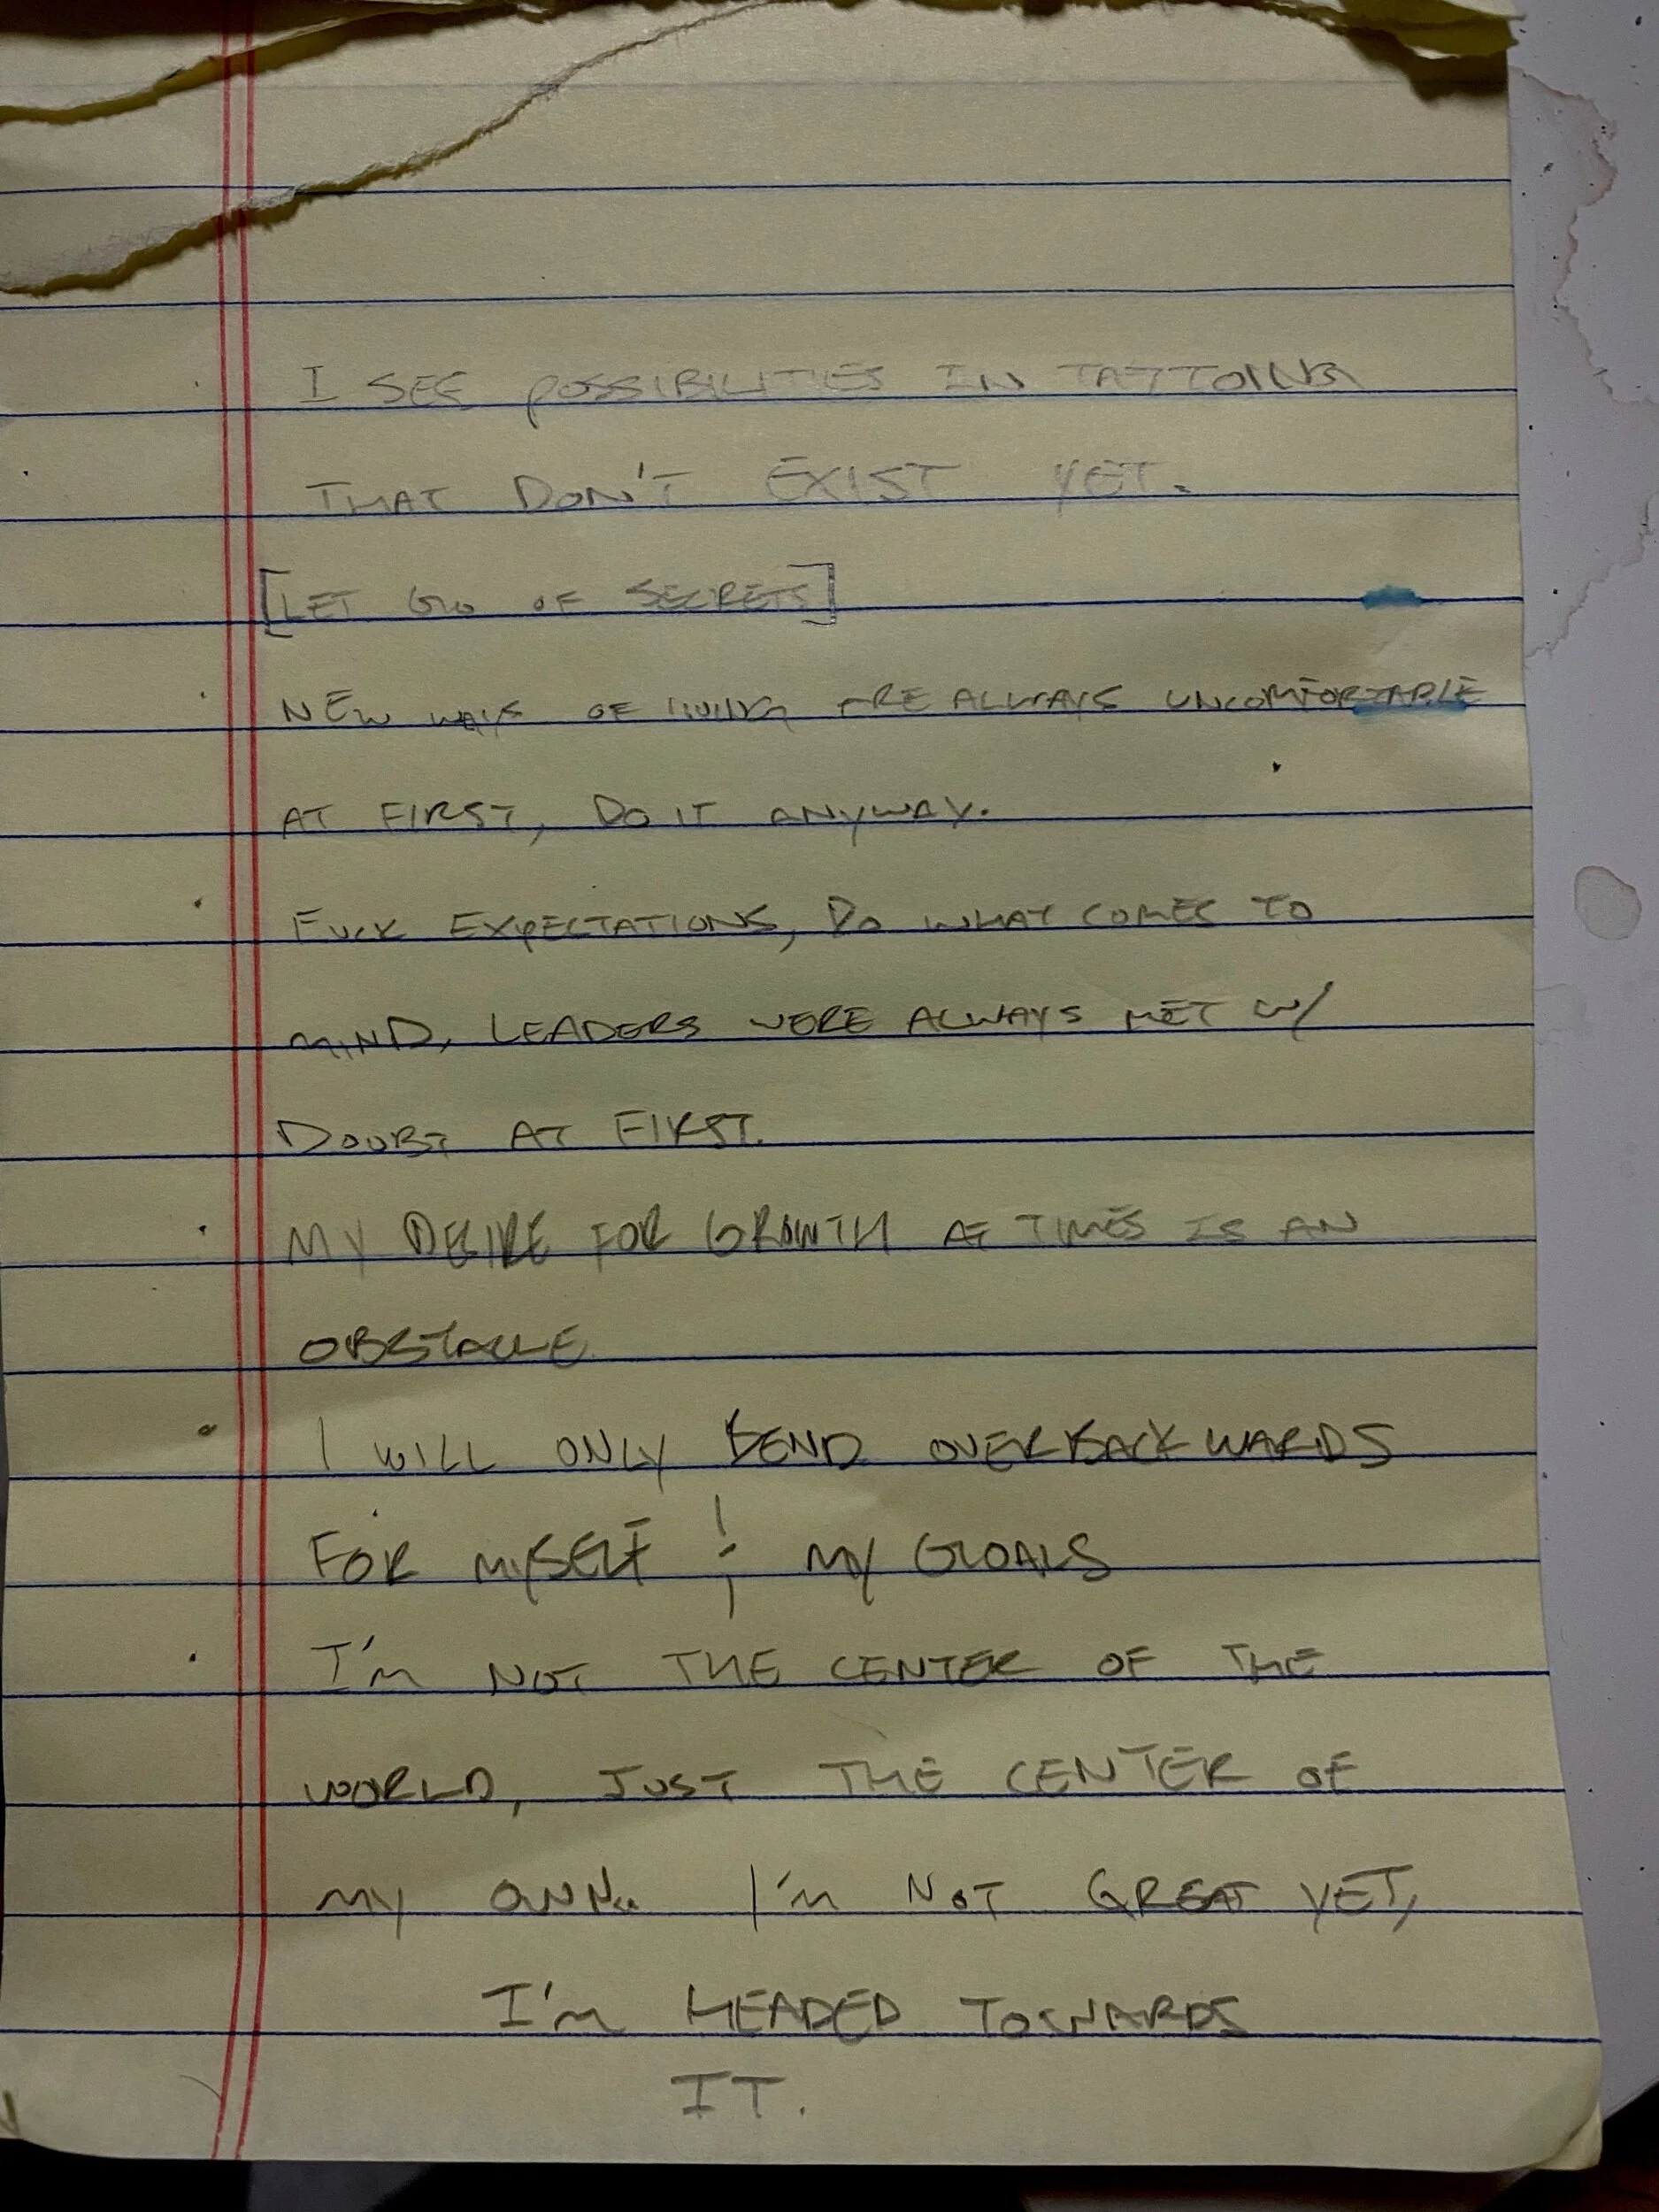 I SEE POSSIBILITIES IN TATTOING
THAT DON'T EXIST YET.
[LET GO OF SECRETS]
NEW WAYS OF LIVING ARE ALWAYS UNCOMFORTABLE
AT FIRST, DO IT ANYWAY.
FUCK EXPECTATIONS, DO WHAT COMES TO
MIND, LEADERS WERE ALWAYS MET W/
DOUBT AT FIRST.
MY DESIRE FOR GROWTH AT TIMES IS AN
OBSTACLE
I WILL ONLY BEND OVER BACKWARDS
FOR MYSELF & MY GOALS
I'M NOT THE CENTER OF THE
WORLD, JUST THE CENTER OF
MY OWN. I'M NOT GREAT YET,
I'M HEADED TOWARDS
IT.